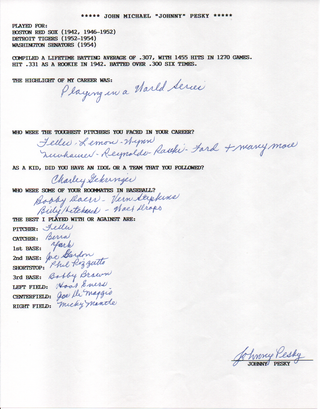 ***** JOHN MICHAEL "JOHNNY" PESKY *****
PLAYED FOR:
BOSTON RED SOX (1942, 1946-1952)
DETROIT TIGERS (1952-1954)
WASHINGTON SENATORS (1954)
COMPILED A LIFETIME BATTING AVERAGE OF .307, WITH 1455 HITS IN 1270 GAMES.
HIT .331 AS A ROOKIE IN 1942. BATTED OVER .300 SIX TIMES.
THE HIGHLIGHT OF MY CAREER WAS:
Playing in a World Series
WHO WERE THE TOUGHEST PITCHERS YOU FACED IN YOUR CAREER?
Feller - Lemon - Wynn
Newhouser - Reynolds - Raschi - Ford + many more
AS A KID, DID YOU HAVE AN IDOL OR A TEAM THAT YOU FOLLOWED?
Charley Gehringer
WHO WERE SOME OF YOUR ROOMMATES IN BASEBALL?
Bobby Doerr - Vern Stephens
Billy Hitchcock - Walt Dropo
THE BEST I PLAYED WITH OR AGAINST ARE:
PITCHER: Feller
CATCHER: Berra
1st BASE: York
2nd BASE: Joe Gordon
SHORTSTOP: Phil Rizzuto
3rd BASE: Bobby Brown
LEFT FIELD: Hoot Evers
CENTERFIELD: Joe DiMaggio
RIGHT FIELD: Micky Mantle
Johnny Pesky
JOHNNY PESKY